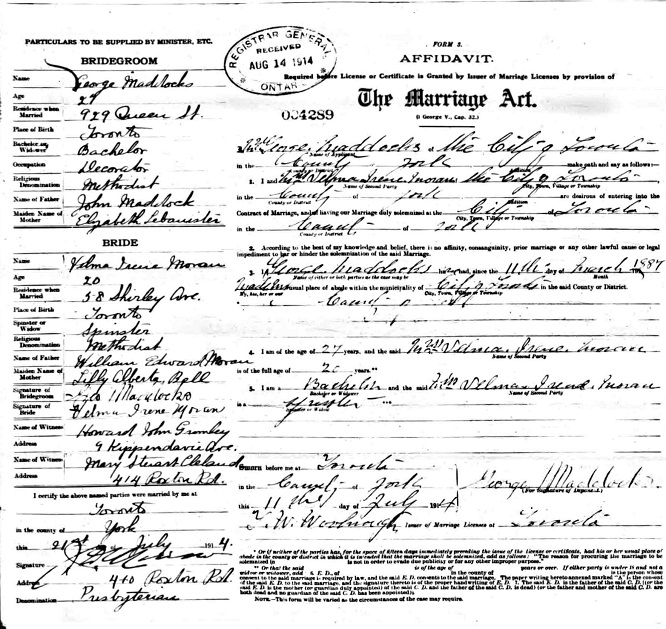 PARTICULARS TO BE SUPPLIED BY MINISTER, ETC.
BRIDEGROOM
Name George Maddocks
Age 27
Residence when Married 929 Queen St.
Place of Birth Toronto
Bachelor or Widower Bachelor
Occupation Decorator
Religious Denomination Methodist
Name of Father John Maddock
Maiden Name of Mother Elizabeth
BRIDE
Name Velma Irene Moran
Age 20
Residence when Married 58 Shirley Ave.
Place of Birth Toronto
Spinster or Widow Spinster
Religious Denomination Methodist
Name of Father William Edward Moran
Maiden Name of Mother Lilly Alberta Bell
Signature of Bridegroom Geo Maddocks
Signature of Bride Velma Irene Moran
Name of Witness Howard John
Address 9 Kippendavie Ave.
Name of Witness Mary Stuart Cleland
Address 414 Roxton Rd.
I certify the above named parties were married by me at
Toronto
in the county of York
this 21st day July 1914.
Signature
Address 410 Roxton Rd.
Denomination Presbyterian
REGISTRAR GENERAL
RECEIVED
AUG 14 1914
ONTARIO
004289
FORM 3.
AFFIDAVIT.
Required before License or Certificate is Granted by Issuer of Marriage Licenses by provision of
The Marriage Act.
(1 George V., Cap. 32.)
George Maddocks of the City of Toronto
Name of Applicant
in the County of York make oath and say as follows:—
County or District
1. I and Velma Irene Moran of the City of Toronto
Name of Second Party City, Town, Village or Township
in the County of York are desirous of entering into the
County or District
Contract of Marriage, and of having our Marriage duly solemnized at the City of Toronto
City, Town, Village or Township
in the County of York
County or District
2. According to the best of my knowledge and belief, there is no affinity, consanguinity, prior marriage or any other lawful cause or legal
impediment to bar or hinder the solemnization of the said Marriage.
3. George Maddocks had, since the 11th day of March 1887
Name of either or both parties as the case may be Month
usual place of abode within the municipality of City of Toronto in the said County or District.
My, his, her or our City, Town, Village or Township
County of York
4. I am of the age of 27 years, and the said Velma Irene Moran
Name of Second Party
is of the full age of 20 years.**
5. I am a Bachelor and the said Velma Irene Moran
Bachelor or Widower Name of Second Party
is a Spinster ***
Spinster or Widow
SWORN before me at Toronto
in the County of York
this 11th day of July 1914
George Maddocks
(For Signature of Deponent.)
Issuer of Marriage Licenses at Toronto
* Or if neither of the parties has, for the space of fifteen days immediately preceding the issue of the license or certificate, had his or her usual place of
abode in the county or district in which it is intended that the marriage shall be solemnized, add as follows: "The reason for procuring the marriage to be
solemnized in is not in order to evade due publicity or for any other improper purpose."
NOTE.—This form will be varied as the circumstances of the case may require.